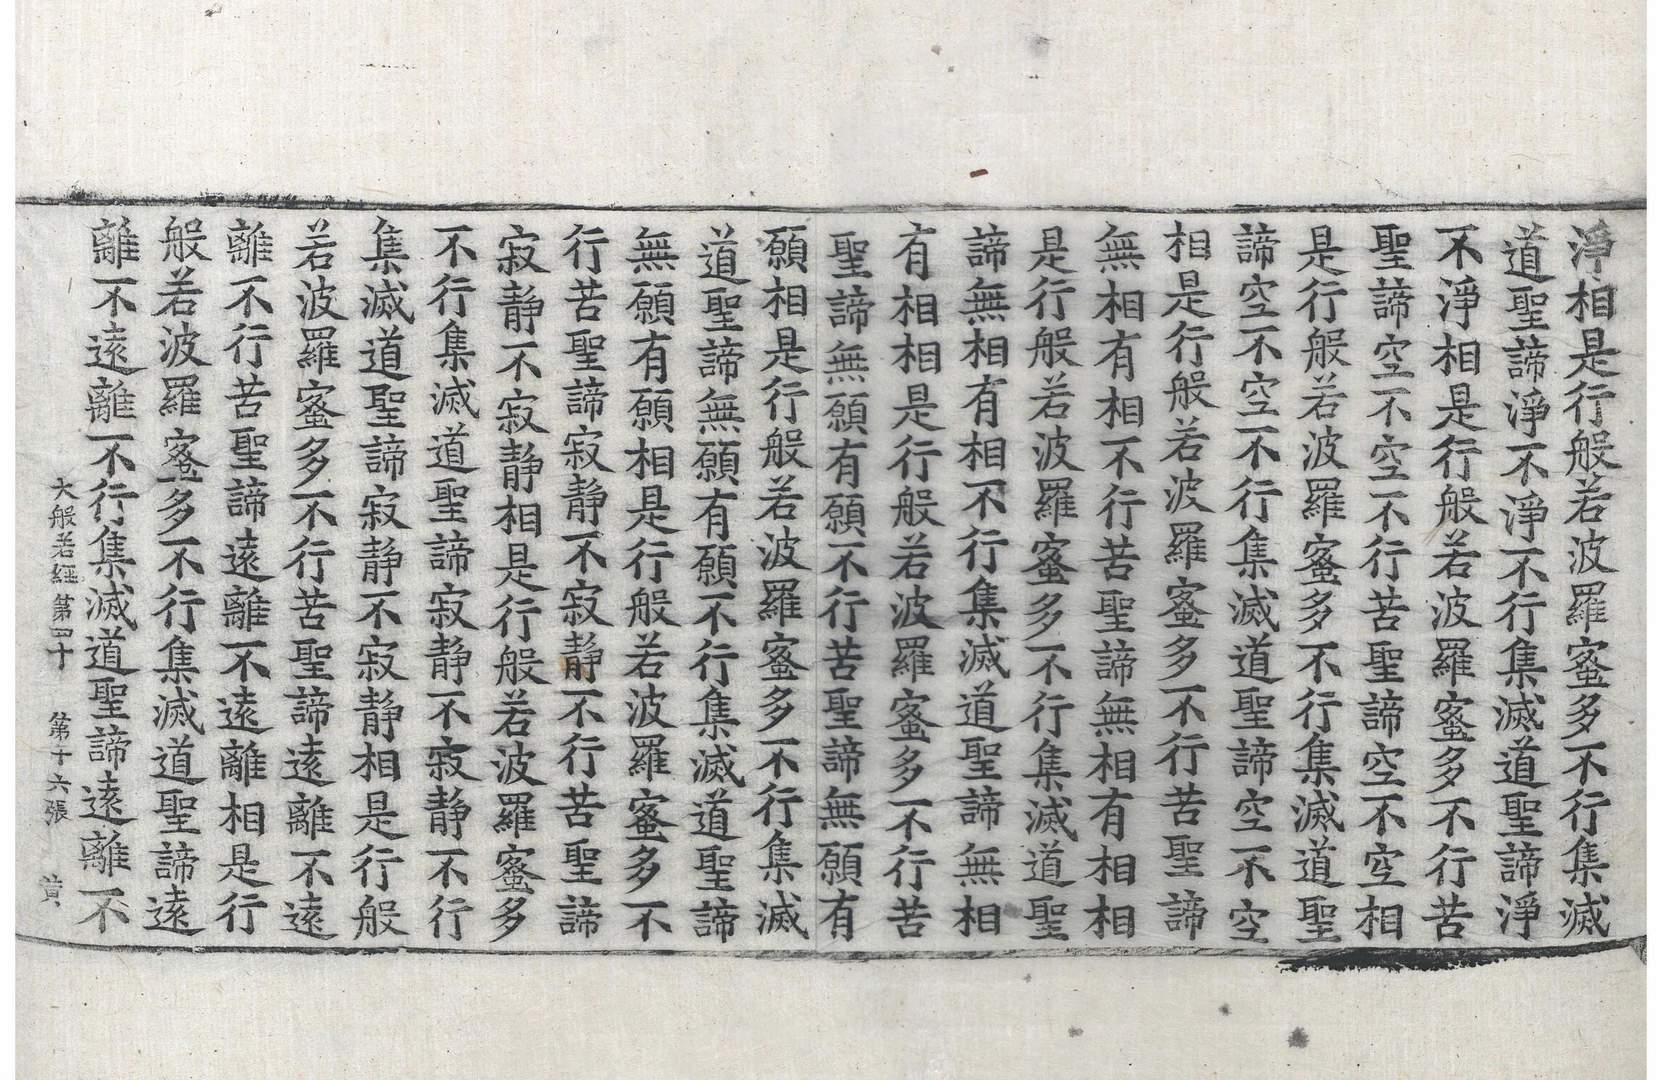 淨相是行般若波羅蜜多不行集滅
道聖諦淨不淨不行集滅道聖諦淨
不淨相是行般若波羅蜜多不行苦
聖諦空不空不行苦聖諦空不空相
是行般若波羅蜜多不行集滅道聖
諦空不空不行集滅道聖諦空不空
相是行般若波羅蜜多不行苦聖諦
無相有相不行苦聖諦無相有相相
是行般若波羅蜜多不行集滅道聖
諦無相有相不行集滅道聖諦無相
有相相是行般若波羅蜜多不行苦
聖諦無願有願不行苦聖諦無願有
願相是行般若波羅蜜多不行集滅
道聖諦無願有願不行集滅道聖諦
無願有願相是行般若波羅蜜多不
行苦聖諦寂静不寂静不行苦聖諦
寂静不寂静相是行般若波羅蜜多
不行集滅道聖諦寂静不寂静不行
集滅道聖諦寂静不寂静相是行般
若波羅蜜多不行苦聖諦遠離不遠
離不行苦聖諦遠離不遠離相是行
般若波羅蜜多不行集滅道聖諦遠
離不遠離不行集滅道聖諦遠離不
大般若經第四十 第十六張 黄